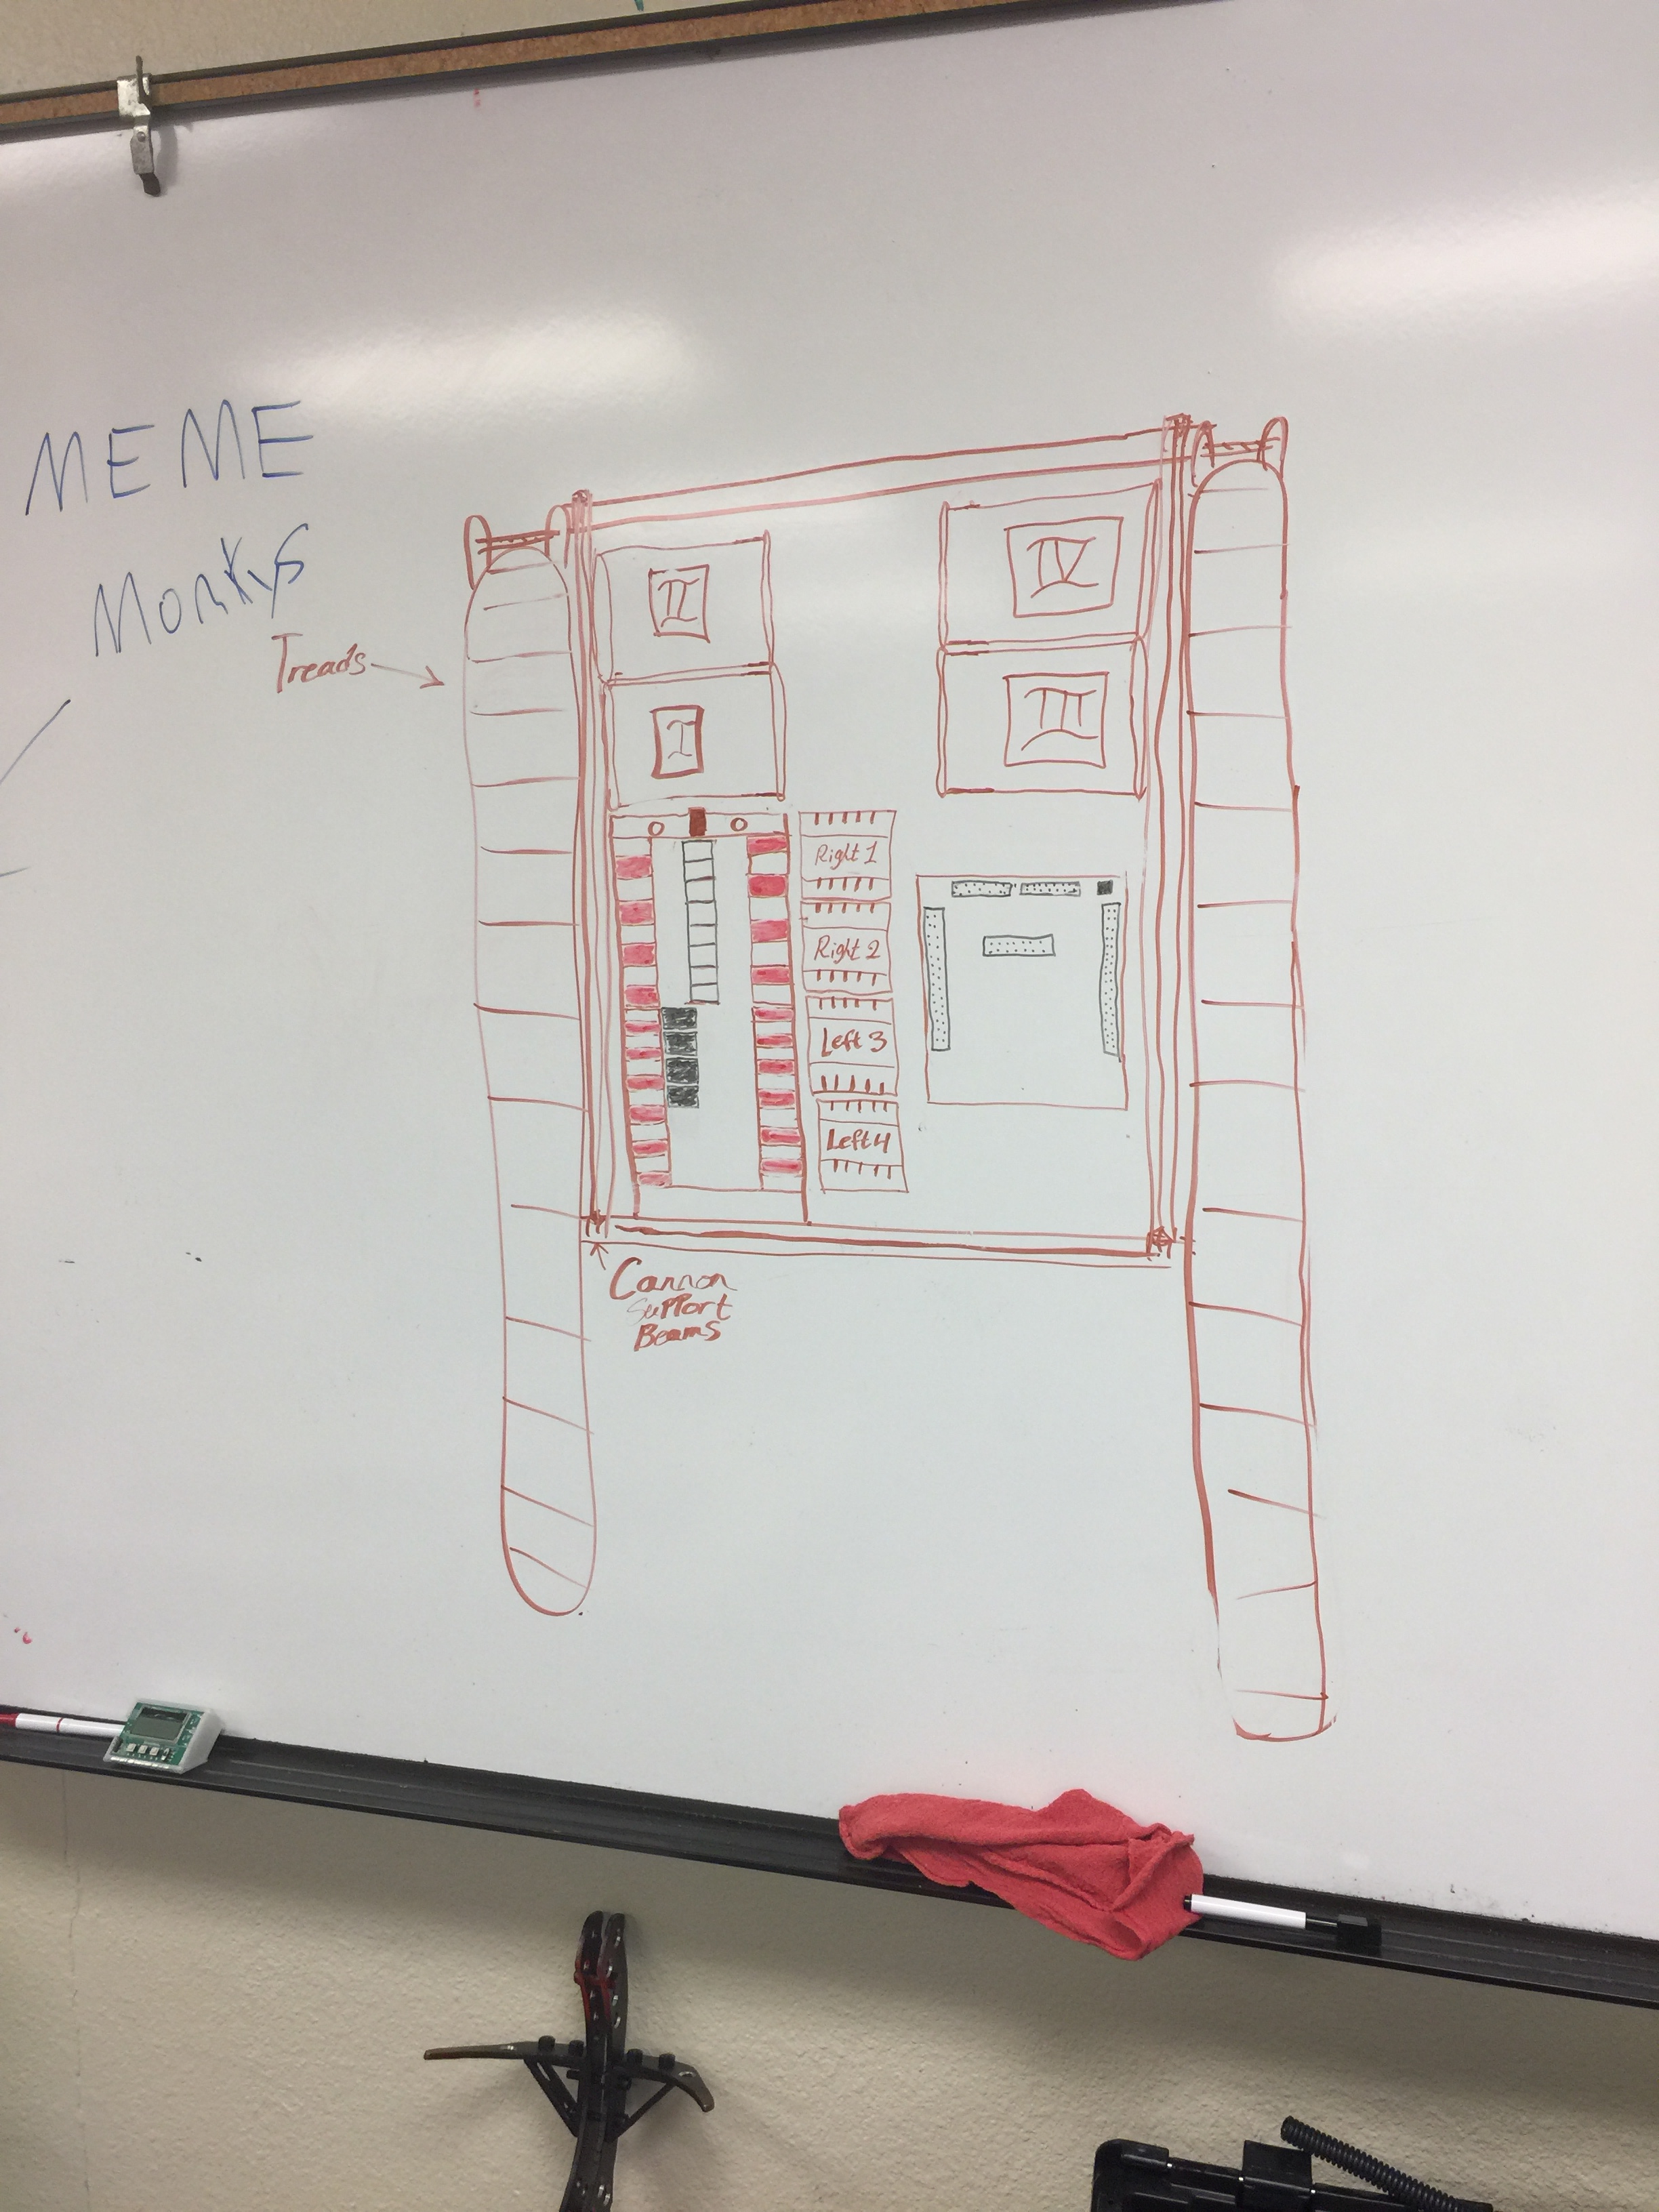 MEME
Monkys
Treads
II
IV
I
III
Right 1
Right 2
Left 3
Left 4
Cannon
Support
Beams